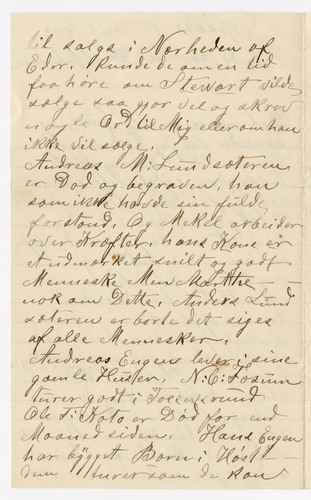 til salgs i Nærheden af
Eder. Kunde de om en tid
faa høre om Stewart vilde
sælge saa gjør vel og skrev
nogle Ord til Mig eller om han
ikke vil sælge.
Andreas M. Lundsæteren
er Død og begraven, han
som ikke havde sin fulde
forstand. Og Mekel arbeider
over Kræfter, hans Kone er
et udmærket snilt og godt
Menneske Men Marthe
nok om Dette. Anders Lund
sæteren er borte det siges
af alle Mennesker.
Andreas Engen lever i sine
gamle Huller. N. C. Fosum
turer godt i
Ole T. Koto er Død for end
Maaned siden. Hans Engen
har bygget Born i Høst
den turer som de kan